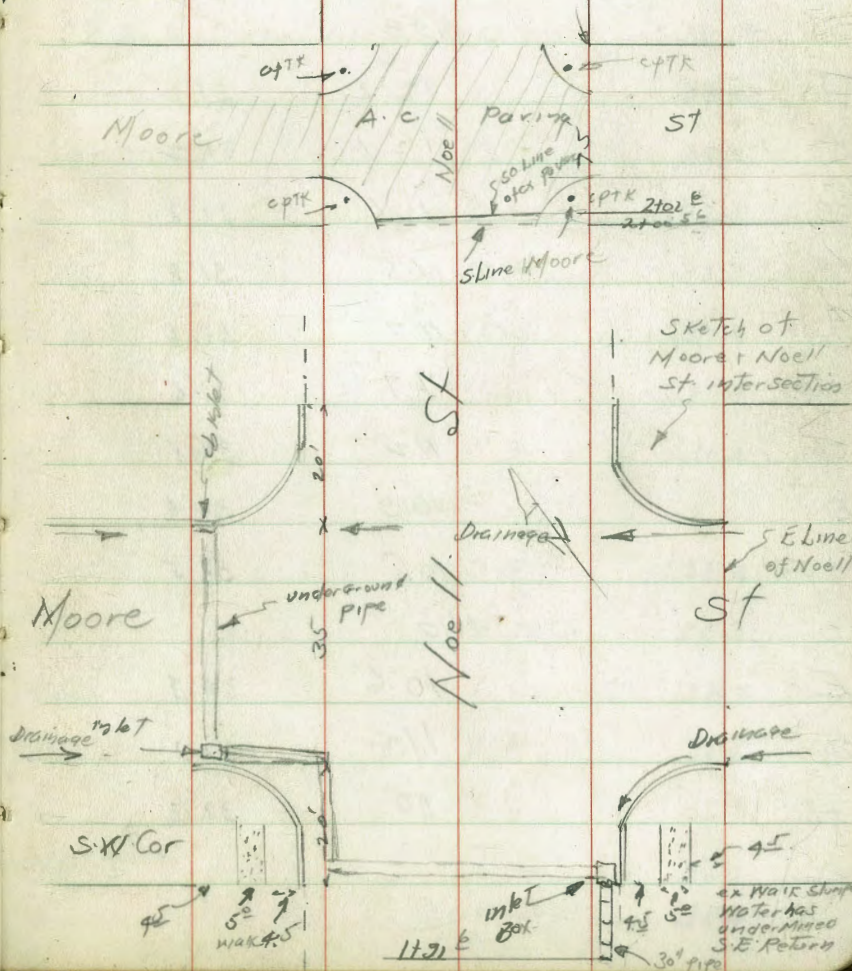 cpTK
cpTK
Moore
A.C
Paving
St
Noell
So Line
of ex Paving
cpTK
cpTK
2+02 6
2+00 56
S Line Moore
Sketch of
Moore & Noell
St. intersection
cb Inlet
St
20'
Drainage
E Line
of Noell
underground
pipe
Moore
St
35
Noell
Drainage
Inlet
Drainage
20'
S.W Cor
45
45
50
walk 4.5
Inlet
Box
45
50
ex Walk slump
Water has
undermined
S.E. Return
1+91 6
30" pipe